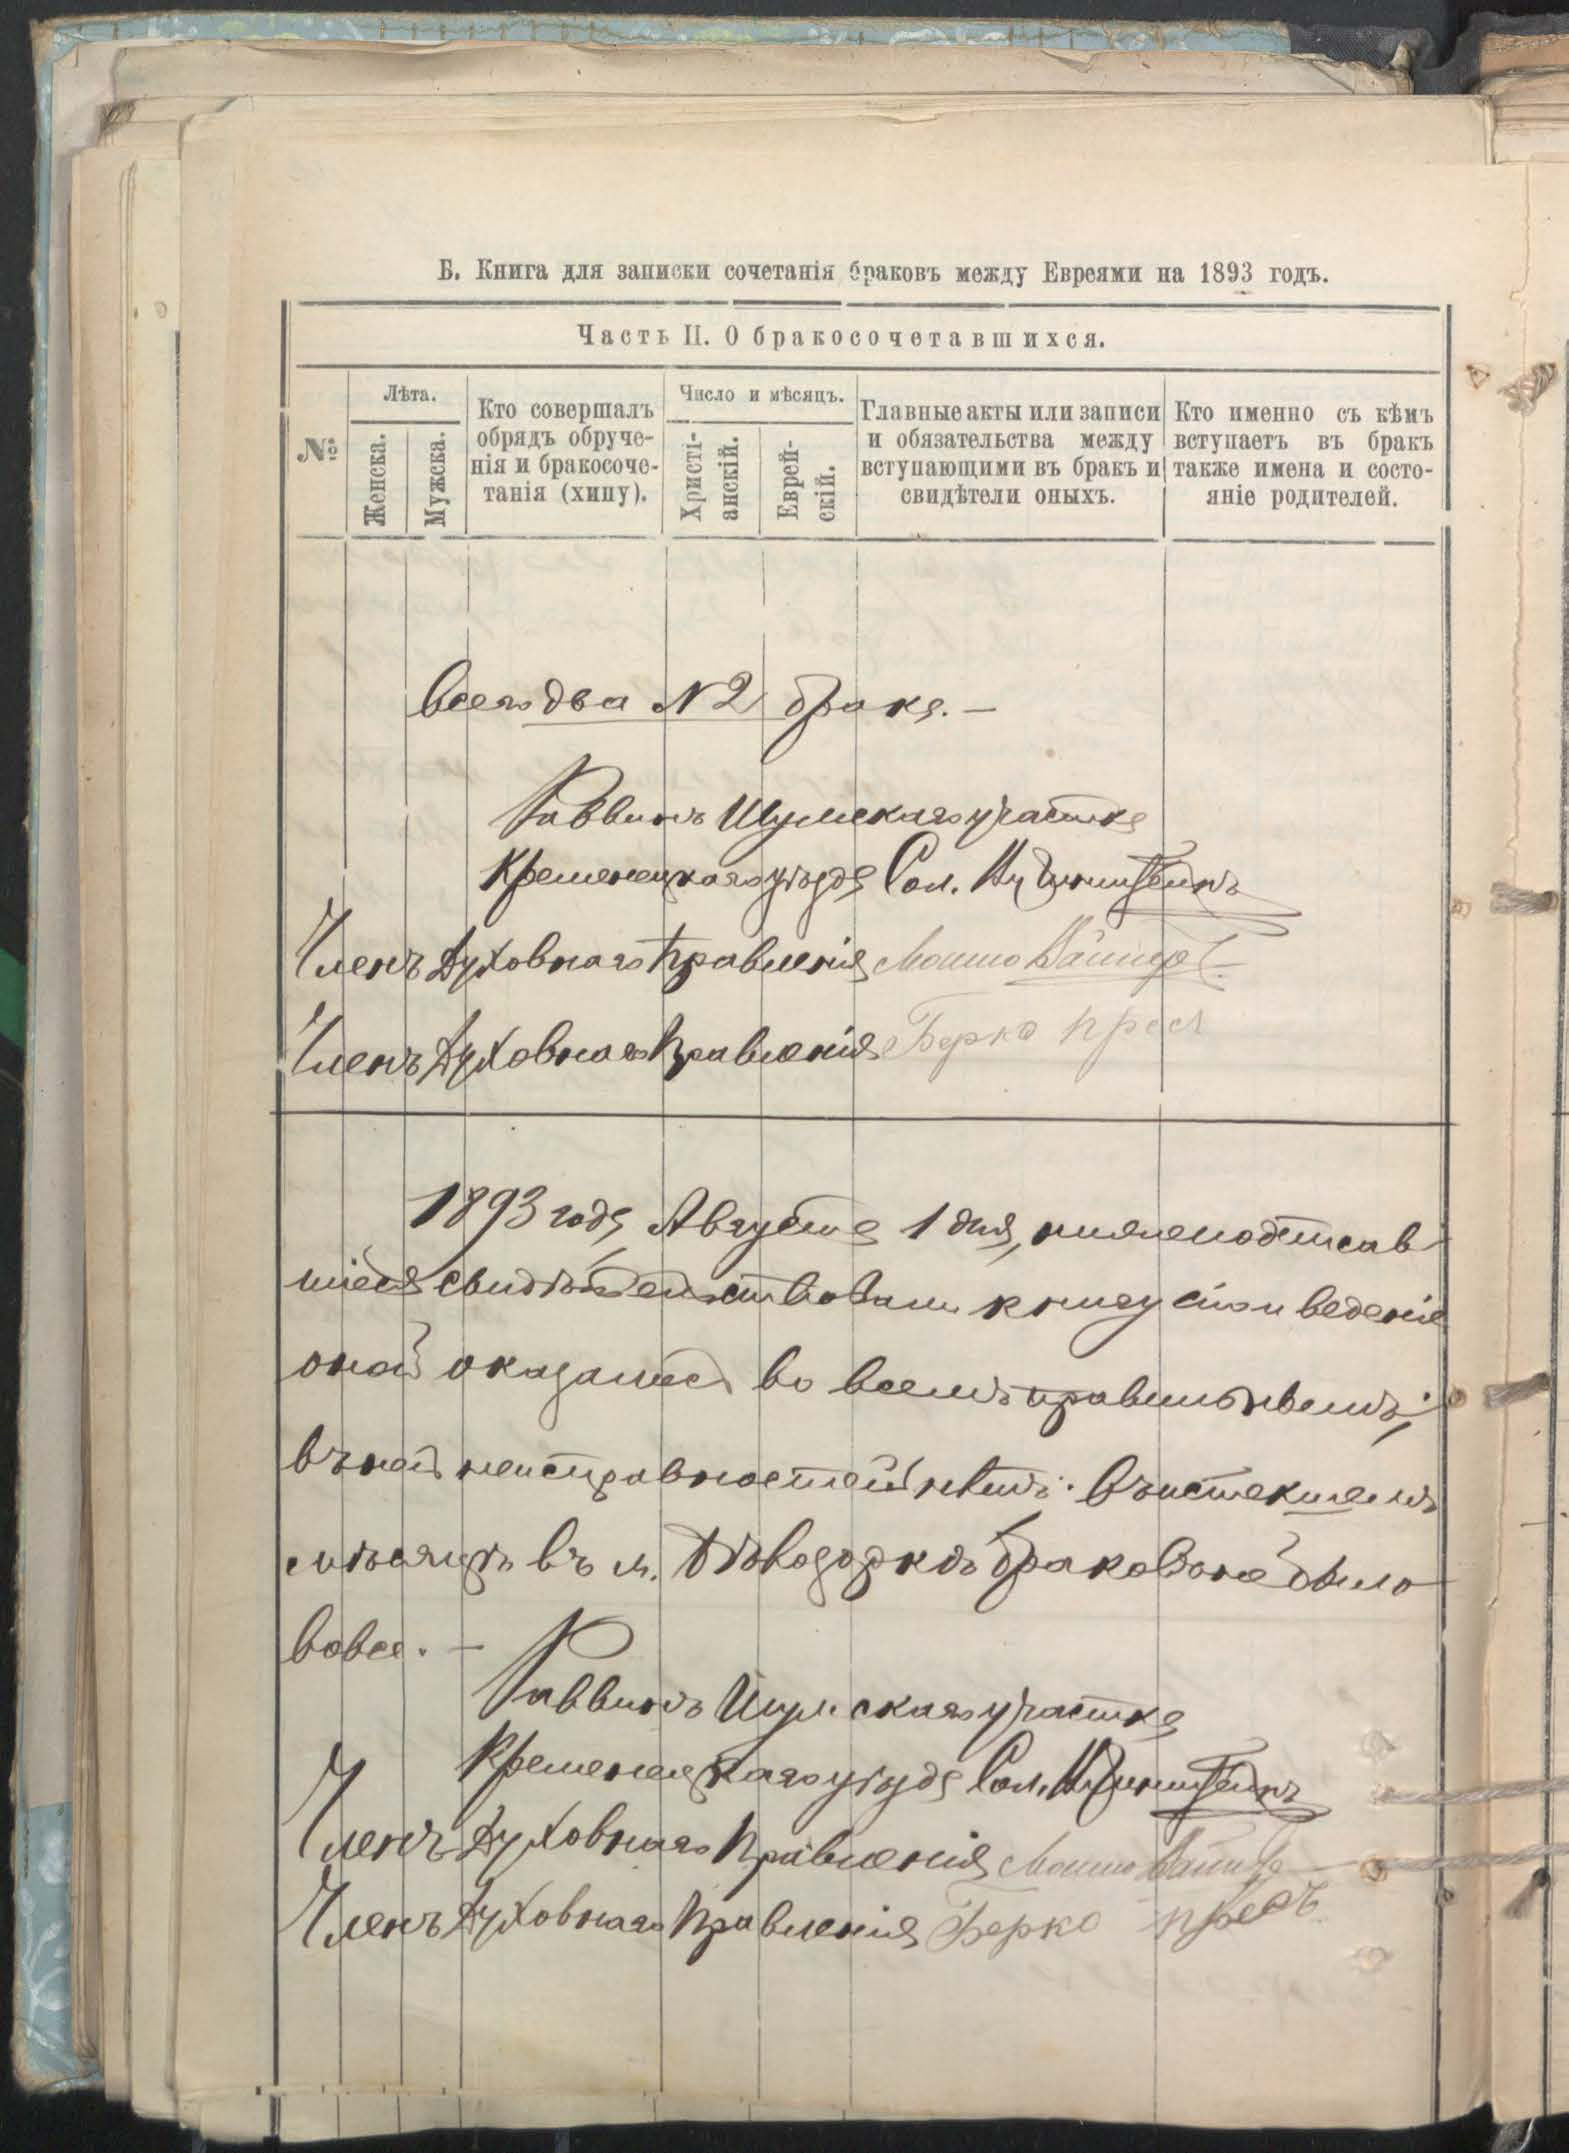 Б. Книга для записки сочетанія браковъ между Евреями на 1893 годъ.
Часть II. О бракосочетавшихся.
№
Лѣта.
Женска.
Мужска.
Кто совершалъ
обрядъ обруче-
нія и бракосоче-
танія (хипу).
Число и мѣсяцъ.
Христі-
анскій.
Еврей-
скій.
Главные акты или записи
и обязательства между
вступающими въ бракъ и
свидѣтели оныхъ.
Кто именно съ кѣмъ
вступаетъ въ бракъ
также имена и состо-
яніе родителей.
Всего два №2 брака. —
Раввинъ Шумскаго участка
Кременецкаго уѣзда Сол.
Членъ Духовнаго Правленія Мошко
Членъ Духовнаго Правленія Берко
1893 года, Августа 1 дня, нижеподписав-
шіеся свидѣтельствовали книгу сію и веденіе
оной оказалось во всемъ правильнымъ,
въ ней неисправностей нѣтъ. Въ истекшемъ
мѣсяцѣ въ м. браковъ не было
вовсе. —
Раввинъ Шумскаго участка
Кременецкаго уѣзда Сол.
Членъ Духовнаго Правленія Мошко
Членъ Духовнаго Правленія Берко